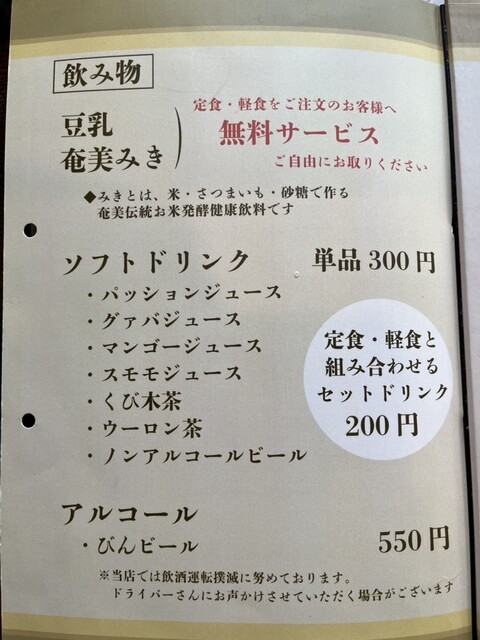 飲み物
豆乳
奄美みき
定食・軽食をご注文のお客様へ
無料サービス
ご自由にお取りください
◆みきとは、米・さつまいも・砂糖で作る
奄美伝統お米発酵健康飲料です
ソフトドリンク 単品300円
・パッションジュース
・グァバジュース
・マンゴージュース
・スモモジュース
・くび木茶
・ウーロン茶
・ノンアルコールビール
定食・軽食と
組み合わせる
セットドリンク
200円
アルコール
・びんビール 550円
※当店では飲酒運転撲滅に努めております。
ドライバーさんにお声かけさせていただく場合がございます